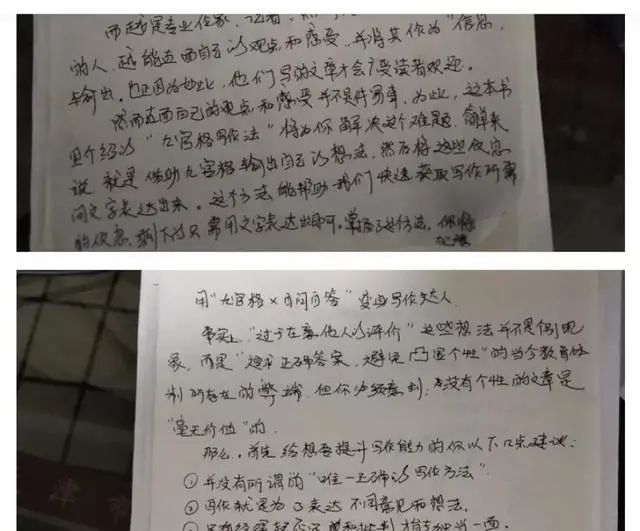 而越是专业作家、记者、
的人,越能直面自己的观点和感受,并将其作为“信息,
输出。也正因为如此,他们写的文章才会广受读者欢迎。
然而直面自己的观点和感受并不是件易事,为此,这本书
介绍的“九宫格写作法”将为你解决这个难题。简单来
说,就是借助九宫格输出自己的想法,然后将这些信息
用文字表达出来。这个方法能帮助我们快速获取写作所需
的信息,剩下的只需用文字表达出即可。掌握了这个方法,你将
用“九宫格×自问自答”变身写作达人
事实上,“过于在意他人的评价”这些想法并不是个别现
象,而是“追求正确答案,避免凸显个性”的当今教育体
制所存在的弊端,但你必须意识到,没有个性的文章是
“毫无价值”的.
那么,首先给想要提升写作能力的你以下几点建议:
①并没有所谓的“唯一正确的写作方法”.
②写作就是为了表达不同意见和想法.